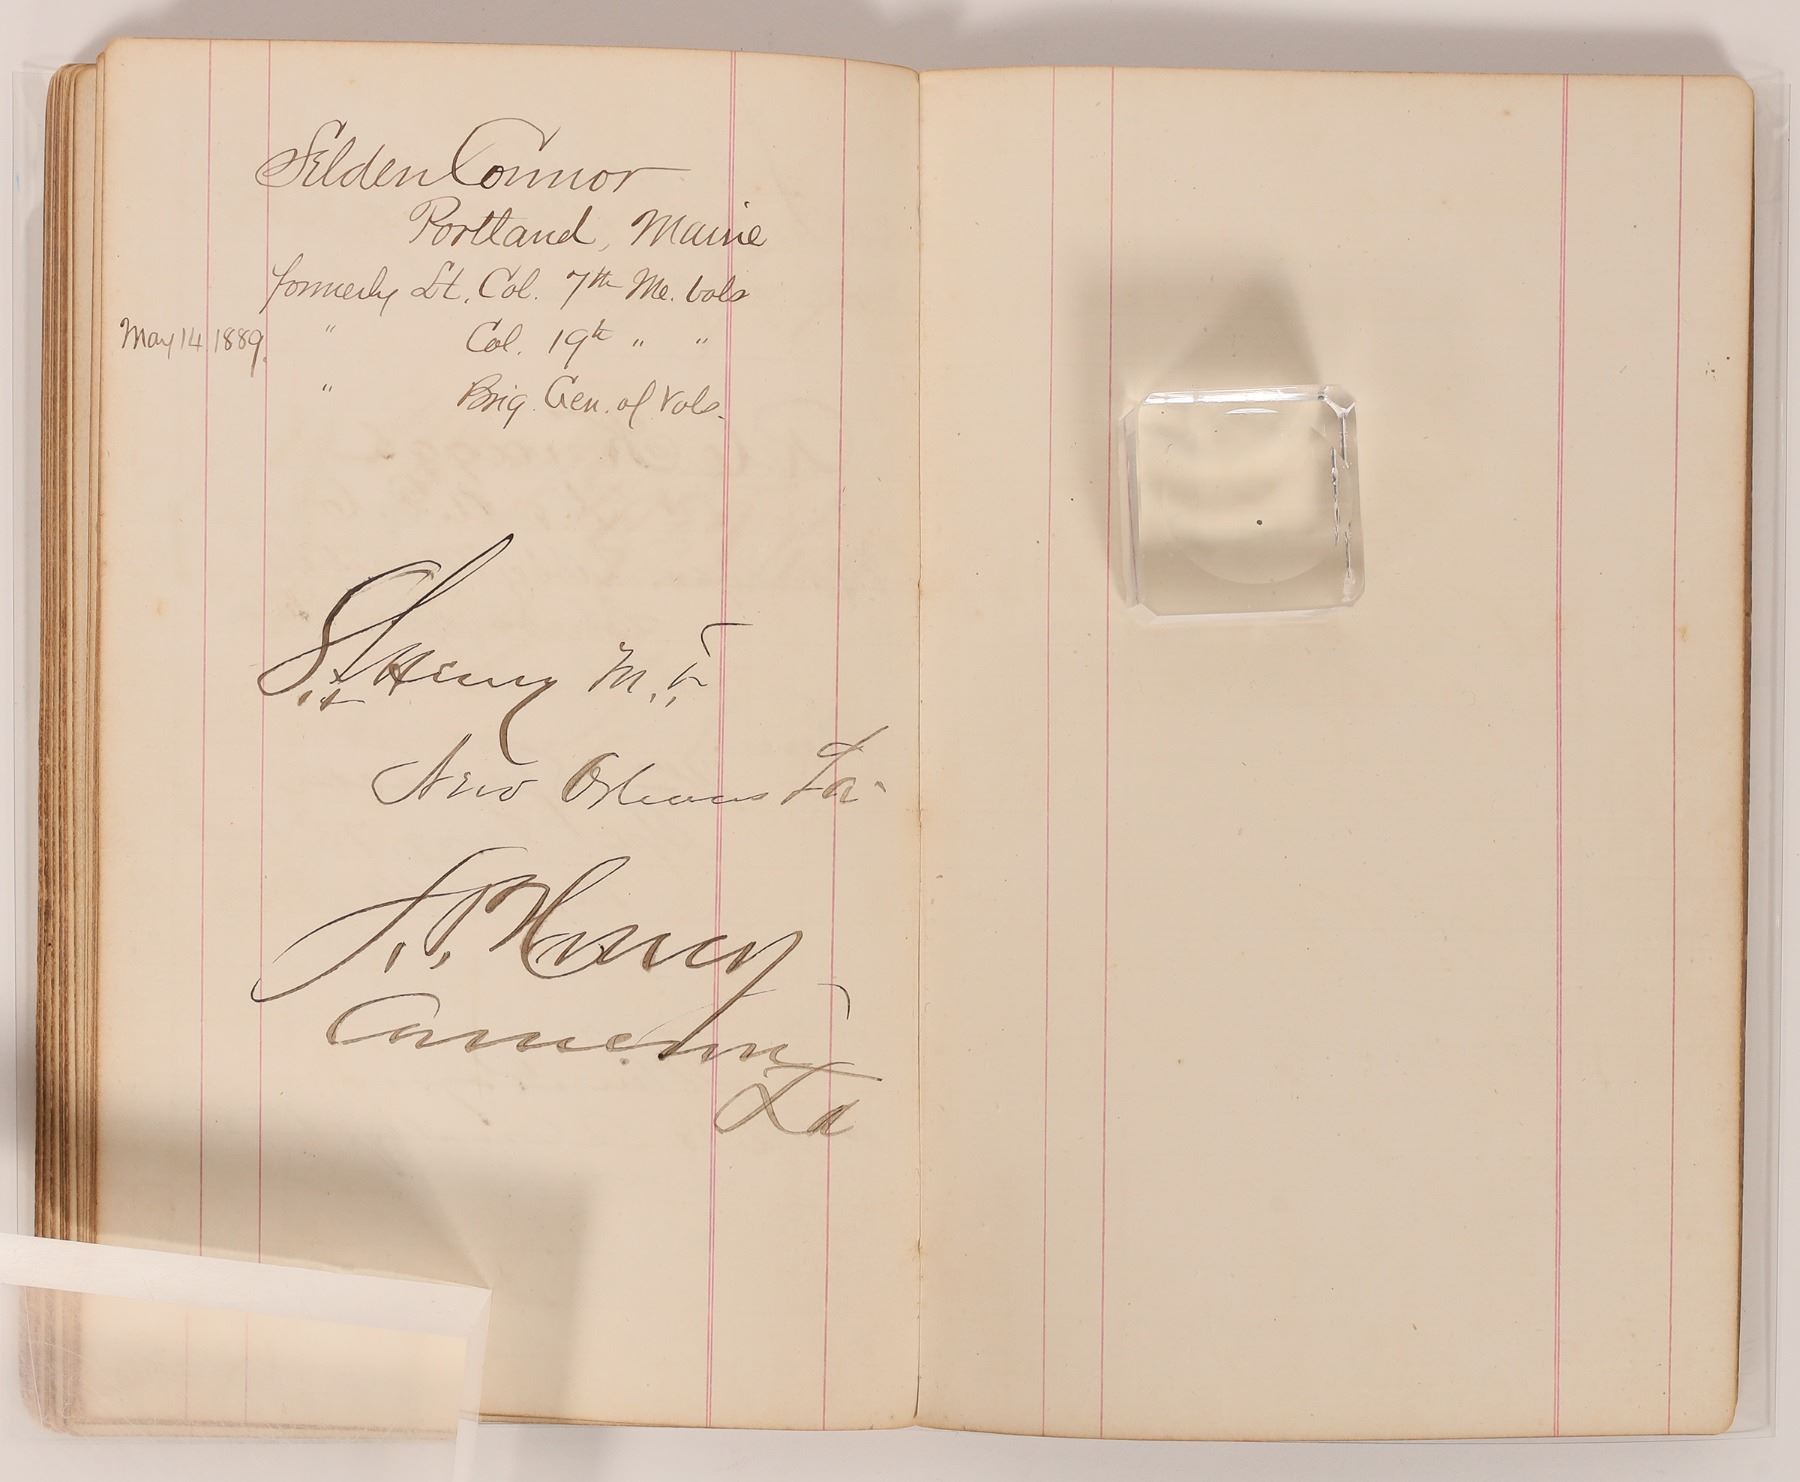 Selden Connor
Portland, Maine
formerly Lt. Col. 7th Me. Vols
May 14 1889. " Col. 19th " "
" Brig. Gen. of Vols.
Henry M.
New Orleans La-
Cameron
La